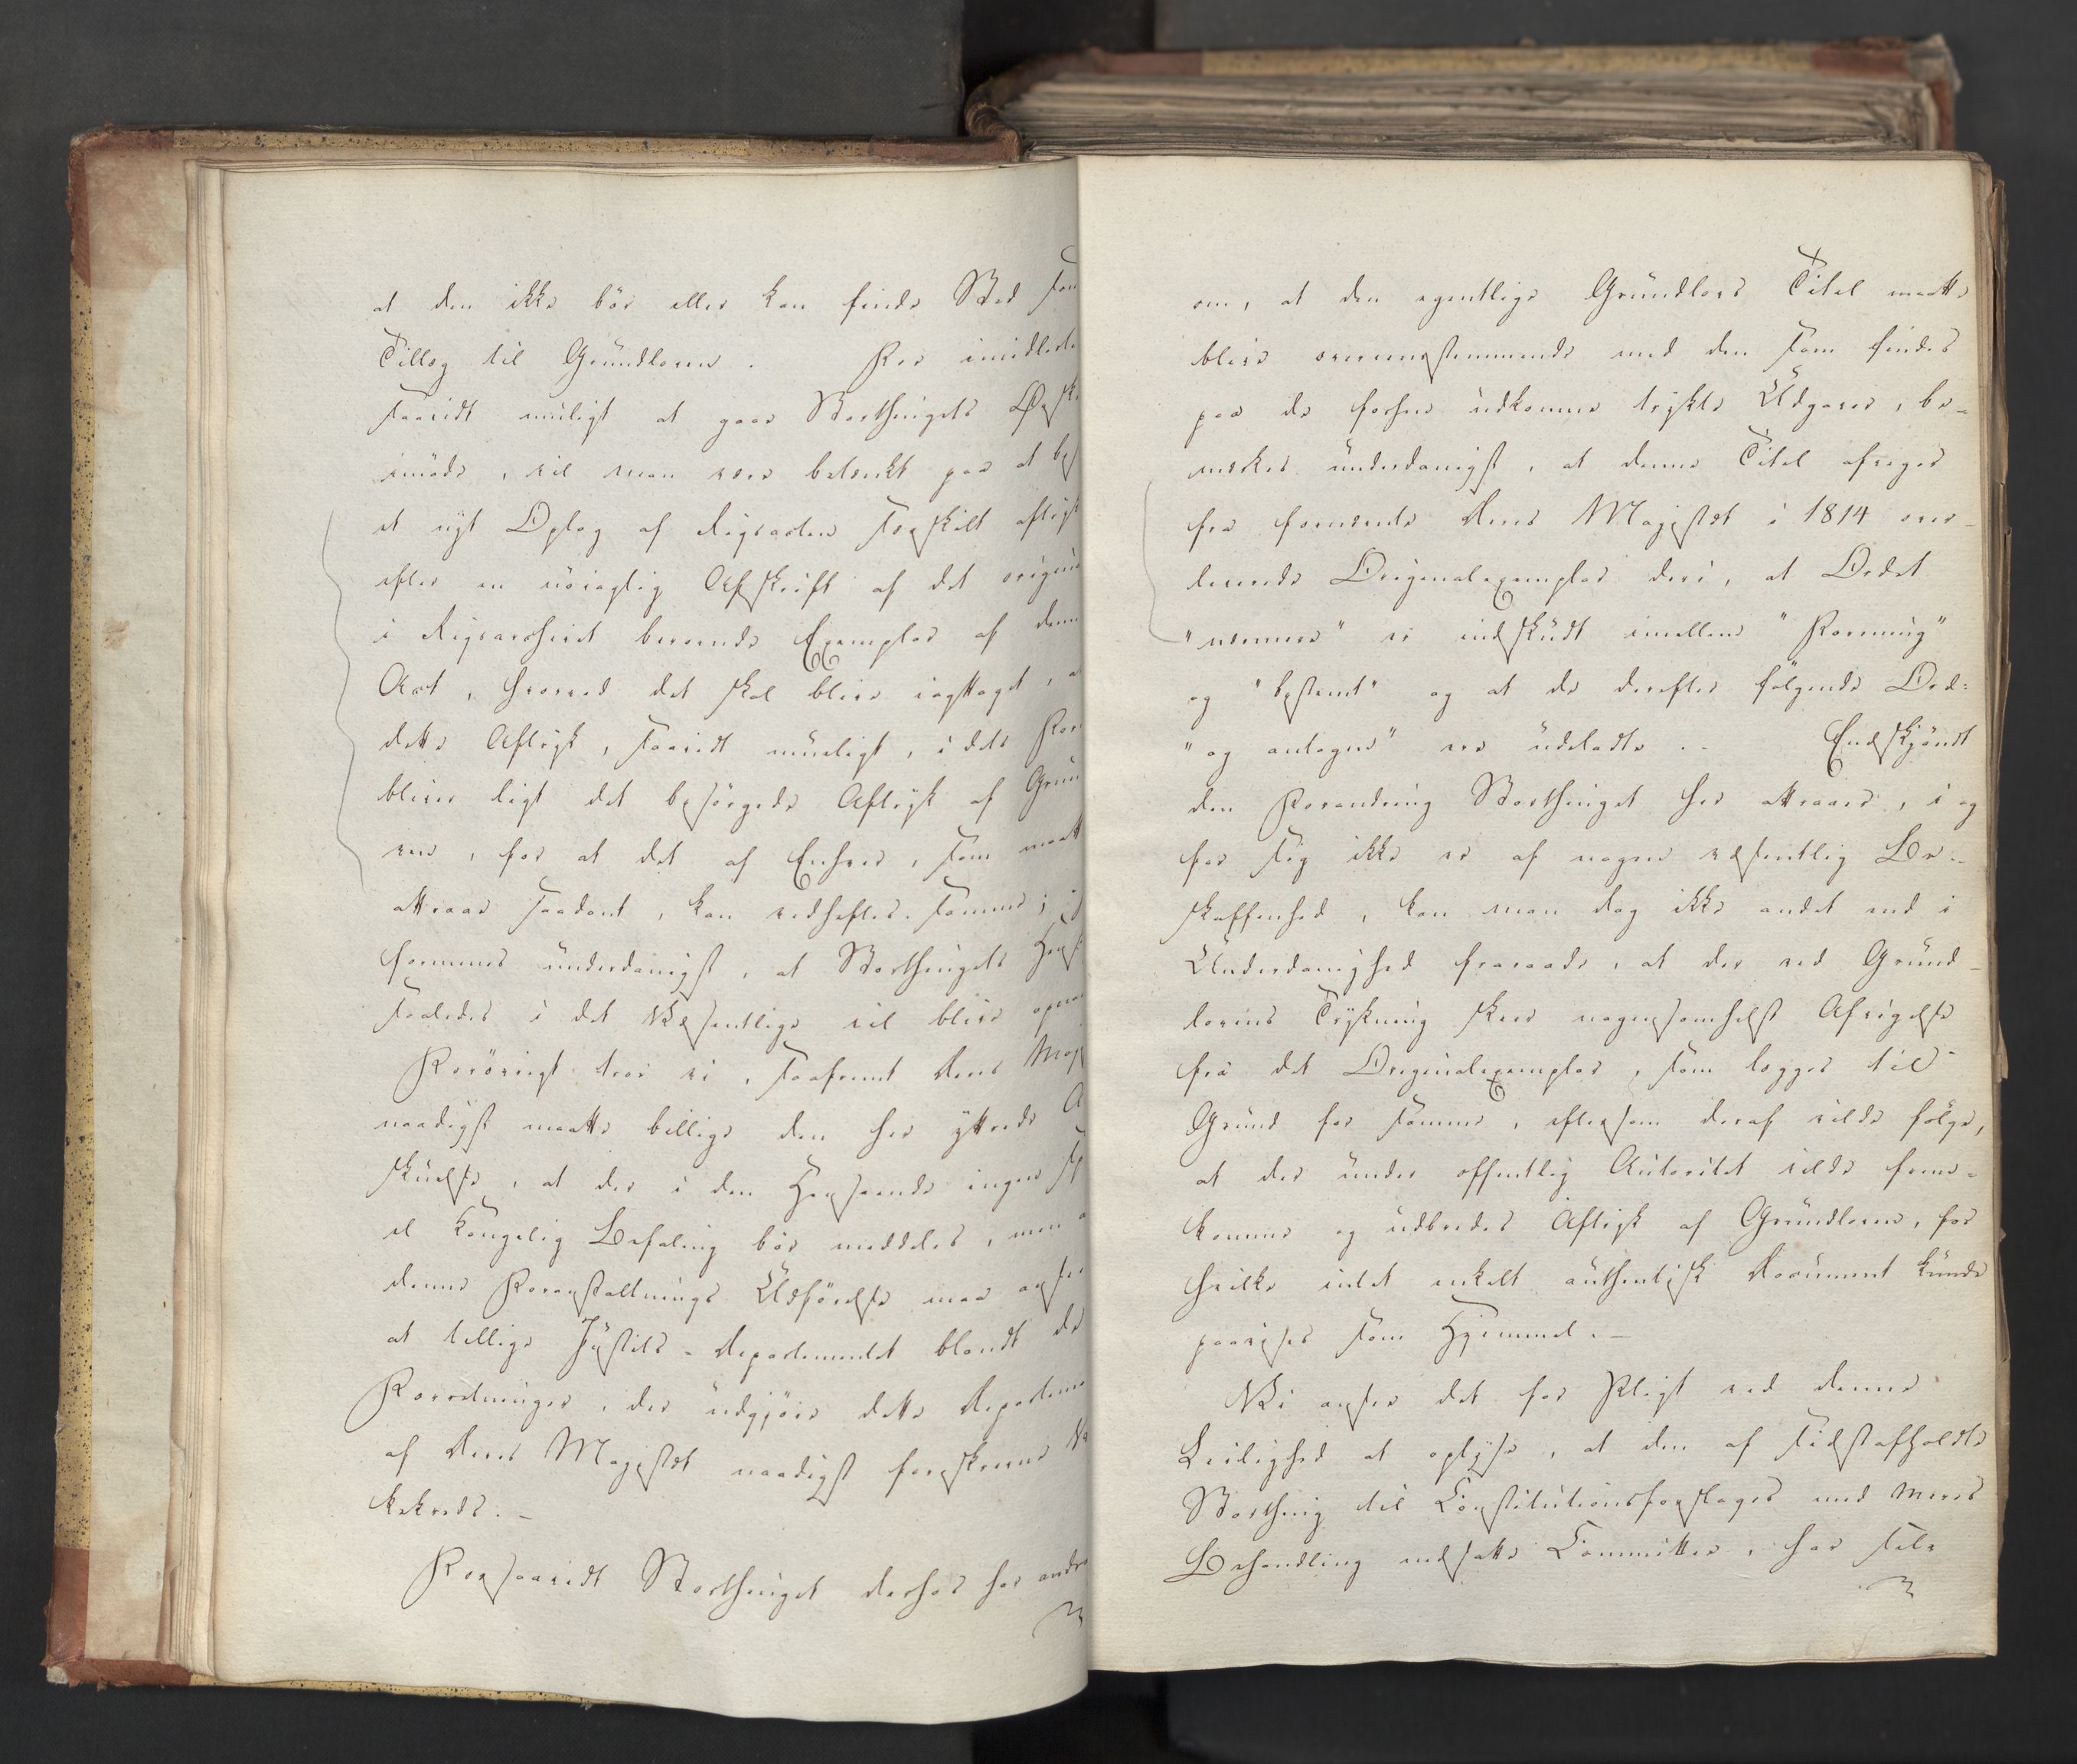 at den ikke bör eller kan finde Sted som
Tillæg til Grundloven. For imidlertid
saavidt muligt at gaae Storthingets Ønske
imöde, vil man være betænkt paa at bes
et nyt Oplag af Rigsacten særskilt aftrykt
efter en nöiagtig Afskrift af det origin
i Rigsarchivet beroende Exemplar af denne
Act, hvorved det skal blive iagttaget, at
dette Aftryk, saavidt mueligt, i dets For
bliver ligt det besörgede Aftryk af Grund
ven, for at det af Enhver, som maatte
attraae saadant, kan vedheftes samme; i
formenes underdanigst, at Storthingets Hensigt
saaledes i det Væsentlige vil blive opnaaet
Forövrigt troe vi, saafremt Deres Majestæt
naadigst maatte billige den her yttrede A
skuelse, at der i den Henseende ingen sp
el kongelig Befaling bör meddeles, men at
denne Foranstaltnings Udförelse maa ansees
at tillige Justits-Departementet blandt de
Forretninger, der udgjöre dette Departements
af Deres Majestæt naadigst foreskrevne Vir
kekreds.-
Forsaavidt Storthinget derhos har andraget
om, at den egentlige Grundlovs Titel maatte
blive overeensstemmende med den som findes
paa de forhen udkomne trykte Udgaver, be-
mærkes underdanigst, at denne Titel afviger
fra fornævnte Deres Majestæt i 1814 over-
leverede Originalexemplar deri, at Ordet
"nærmere" er indskudt imellem "Forening"
og "bestemt" og at de derefter fölgende Ord:
"og antagne" ere udeladte.- Endskjöndt
den Forandring Storthinget her attraaer, i og
for sig ikke er af nogen væsentlig Be-
skaffenhed, kan man dog ikke andet end i
Underdanighed fraraade, at der ved Grund-
lovens Trykning skeer nogensomhelst Afvigelse
fra det Originalexemplar, som lægges til
Grund for samme, eftersom deraf vilde fölge,
at der under offentlig Autoritet vilde frem-
komme og udbredes Aftryk af Grundloven, for
hvilke intet enkelt authentisk Document kunde
paavises som Hjemmel.-
Vi ansee det for Pligt ved denne
Leilighed at oplyse, at den af sidstafholdte
Storthing til Constitutionsforslages med Meres
Behandling nedsatte Committee, har selv